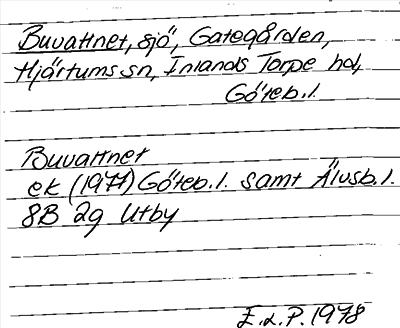 Buvattnet, sjö, Gategården,
Hjärtums sn, Inlands Torpe hd,
Göteb.l.
Buvattnet
ek (1977) Göteb.l. samt Älvsb.l.
8B 2g Utby
E.L.P. 1978